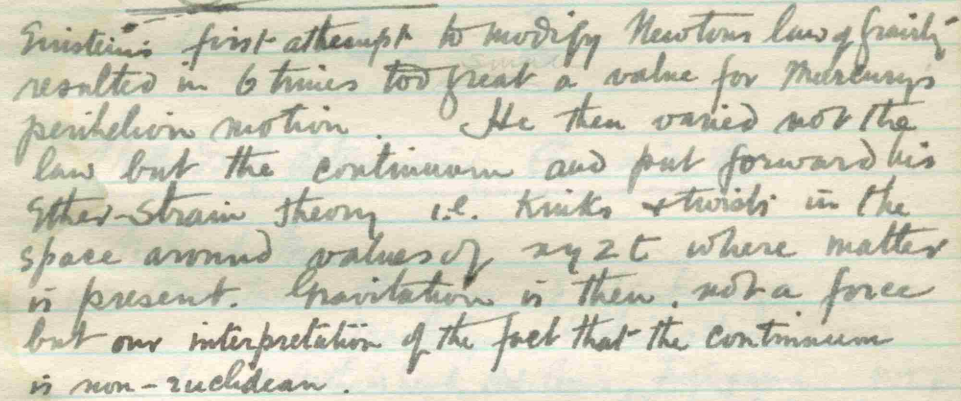 Einstein's first attempt to modify Newtons law of Gravity
resulted in 6 times too great a value for Mercury's
perihelion motion. He then varied not the
law but the continuum and put forward his
Ether-Strain theory i.e. Kinks & twists in the
space around values of xyzt where matter
is present. Gravitation is then, not a force
but our interpretation of the fact that the continuum
is non-euclidean.